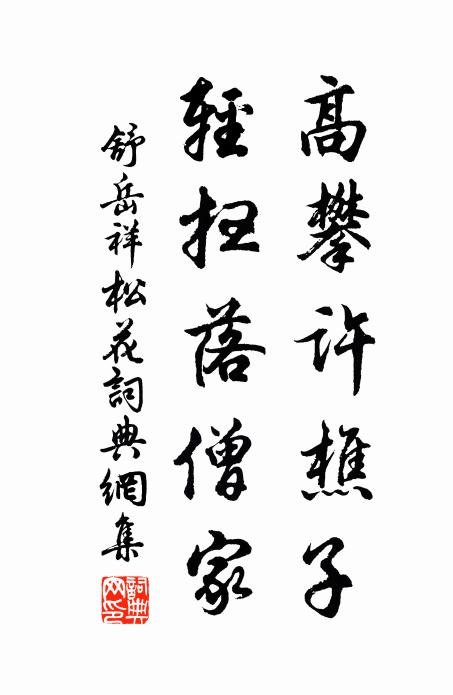 高攀許樵子
輕扫落僧家
舒岳祥松花詞典網集
詞典网印